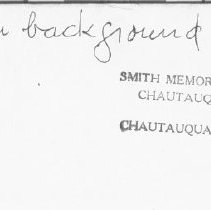 background
SMITH MEMOR
CHAUTAUQ
CHAUTAUQUA